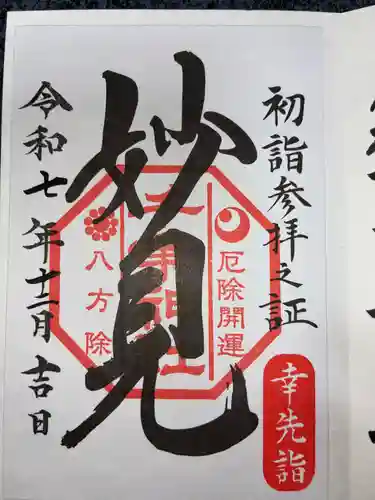 初詣参拝之証
幸先詣
妙見
千葉神社
厄除開運
八方除
令和七年十二月吉日